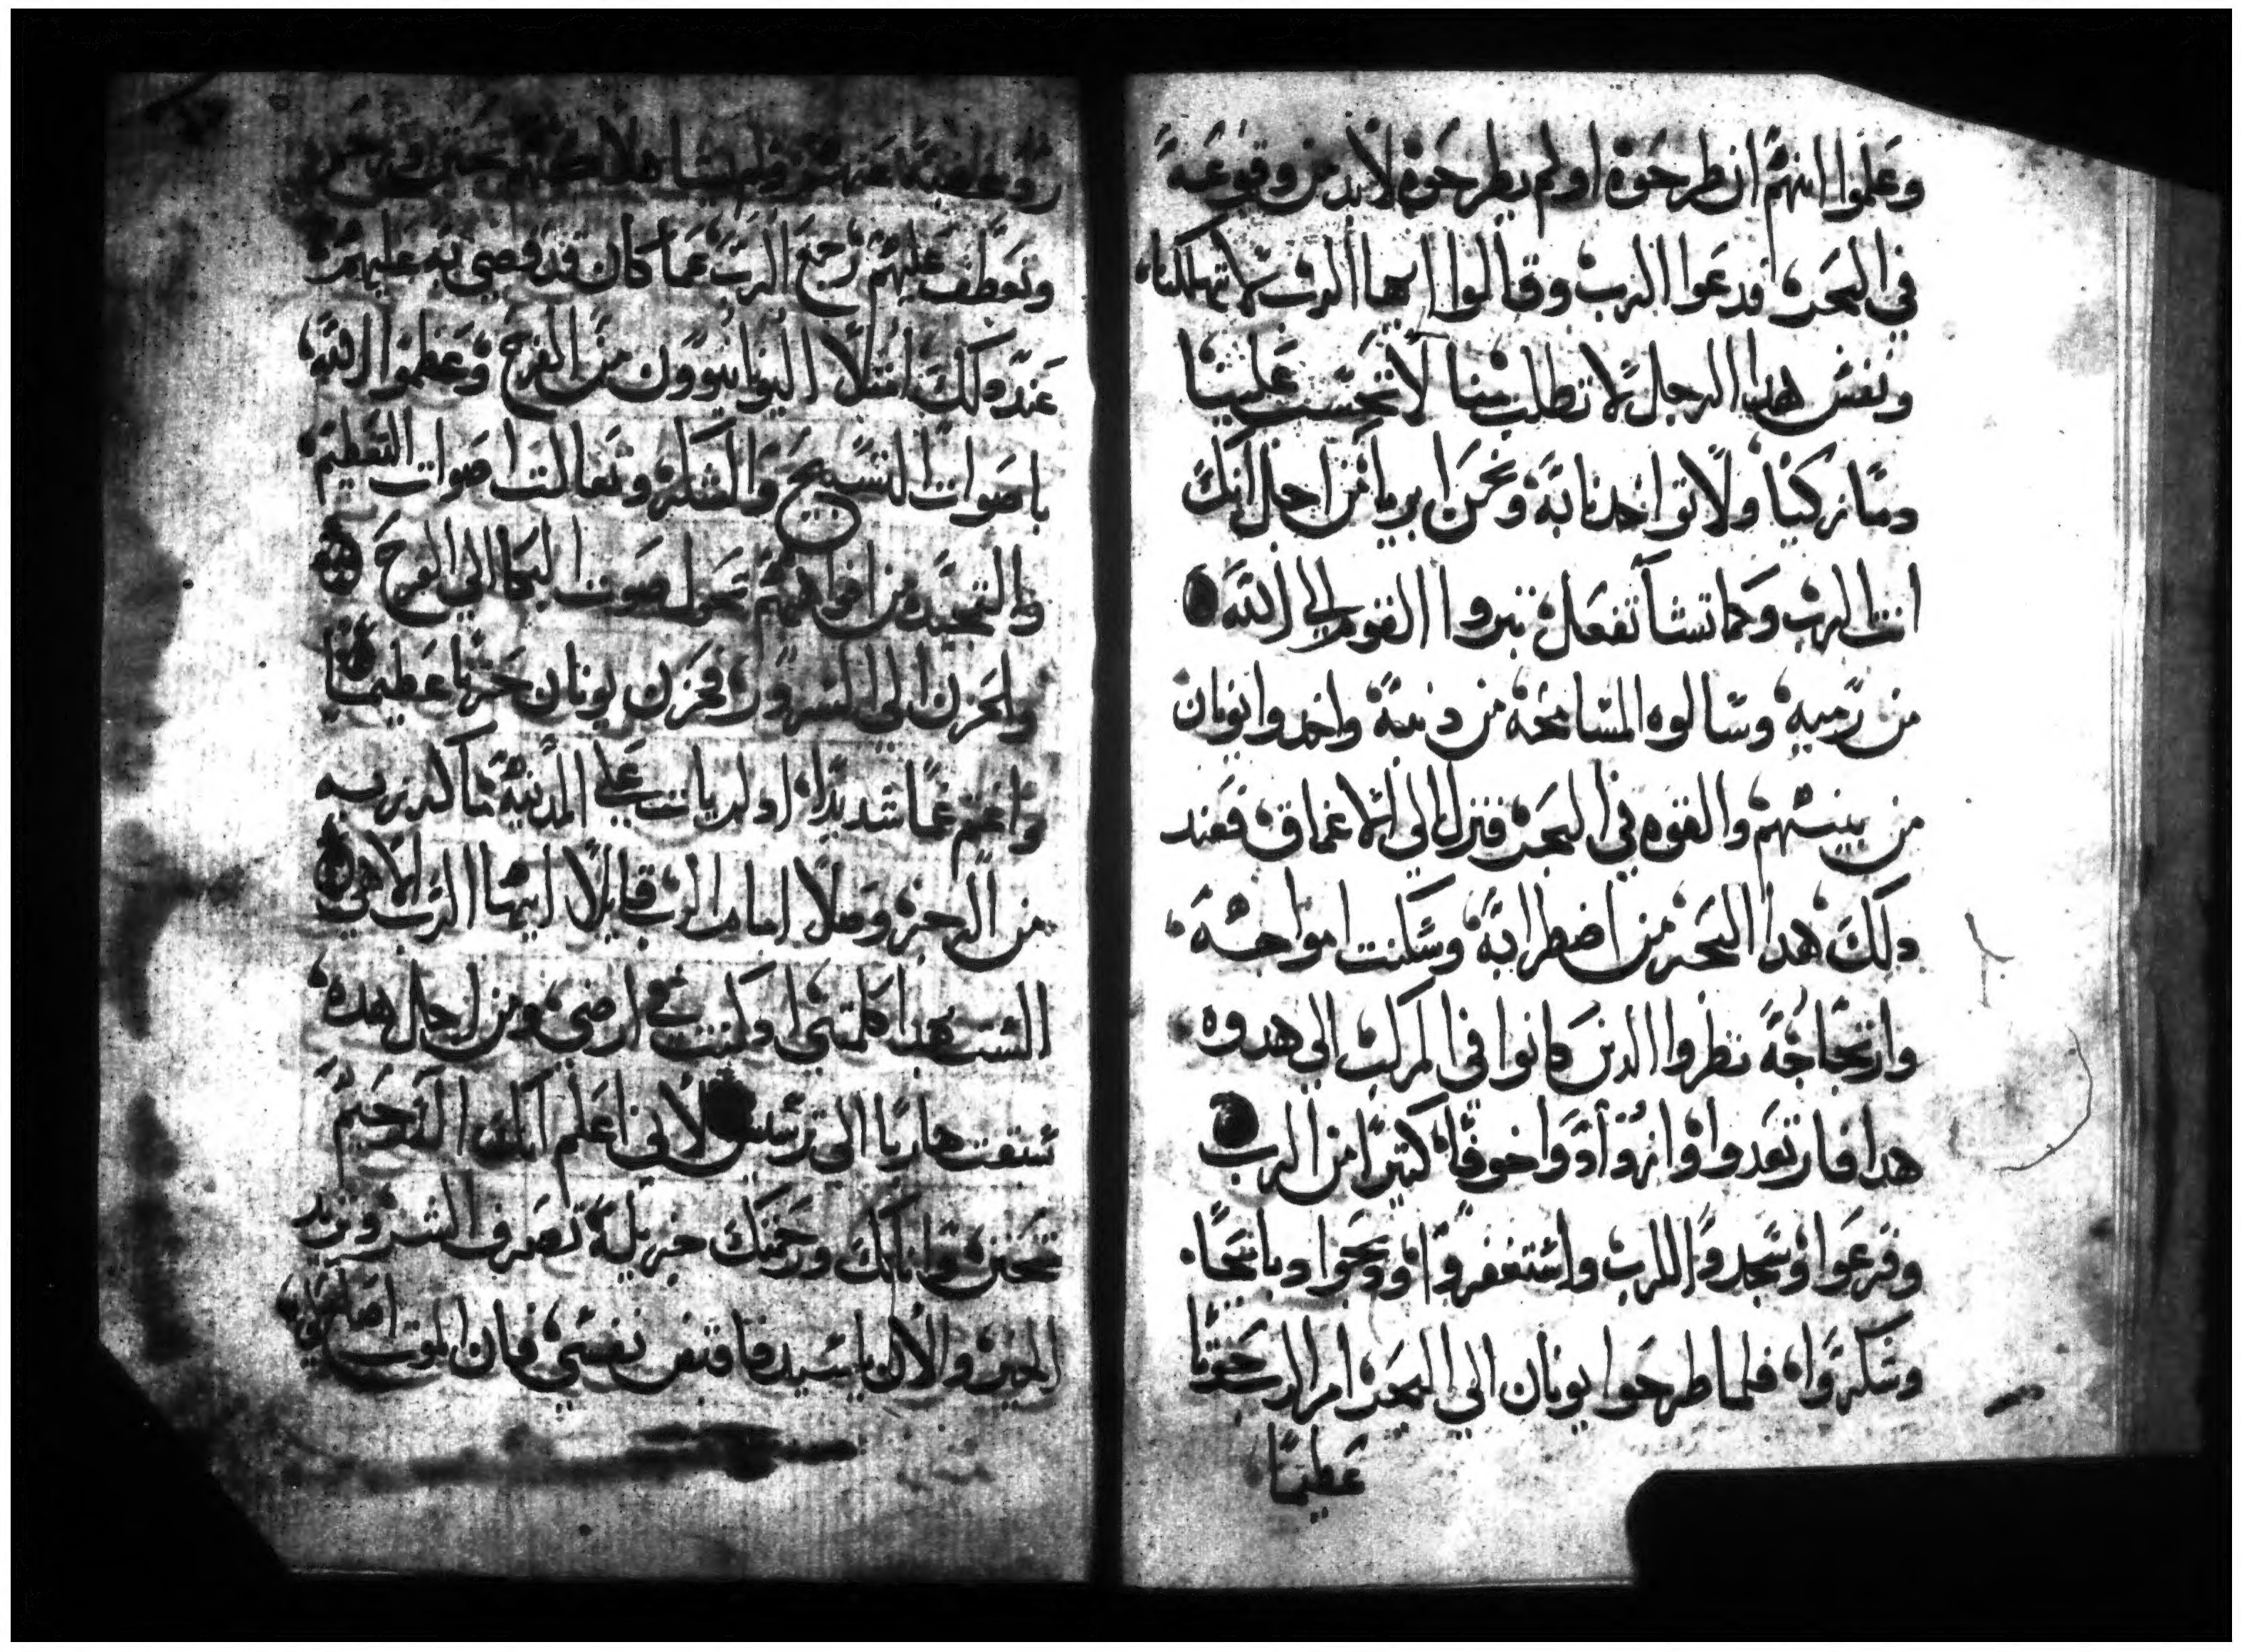 وعلموا انهم ان طرحوه او لم يطرحوه لا بد من وقوعه
في البحر، فدعوا الرب وقالوا ايها الرب لا تهلكنا،
ونفس هدا الرجل لا تطلب منا لا تحسب علينا
دمًا زكيًا ولا تواخدنا به ونحن ابريا من اجل انك
انت الرب وكما تشا تفعل تبروا القوم الي الله
من رميه وسالوه المسامحه من دنبه واخدوا يونان
من بينهم والقوه في البحر فنزل الي الاعماق فعند
دلك هدا البحر من اضطرابه وسكنت امواجه
وارتجاجه نظروا الدين كانوا في المركب الي هدوه
هدا فارتعدوا وازدادوا خوفًا كتيرًا من الرب
وفزعوا وسجدوا للرب واستغفروا ودبحوا دبايحًا
وشكروا، فلما طرحوا يونان الي البحر امر الرب حوتًا
عظيمًا
وتعطف عليهم رجع الرب عما كان قد قضي به عليهم
عند دلك امتلا النينوايون من الفرح وعظموا الله
باصوات التسبيح والشكر وتعالت اصوات التعظيم
والتمجيد من افواههم تحول صوت البكا الي الفرح
والحزن الي السرور، فحزن يونان حزنًا عظيمًا
واغتم غمًا شديدًا، اد لم يات علي المدينة ما كرز به
من الرجز وصلا امام الرب قايلًا ايها الرب الاهي
الست هدا كلمتي اد كنت في ارضي ومن اجل هده
سبقت هاربًا الي ترسيس لاني اعلم انك الله رحيم
تتحنن واناتك ورحمتك جزيلة تصرف الشر وتزيد
الخير والان يا سيد فاقبض نفسي فان الموت اصلح لي